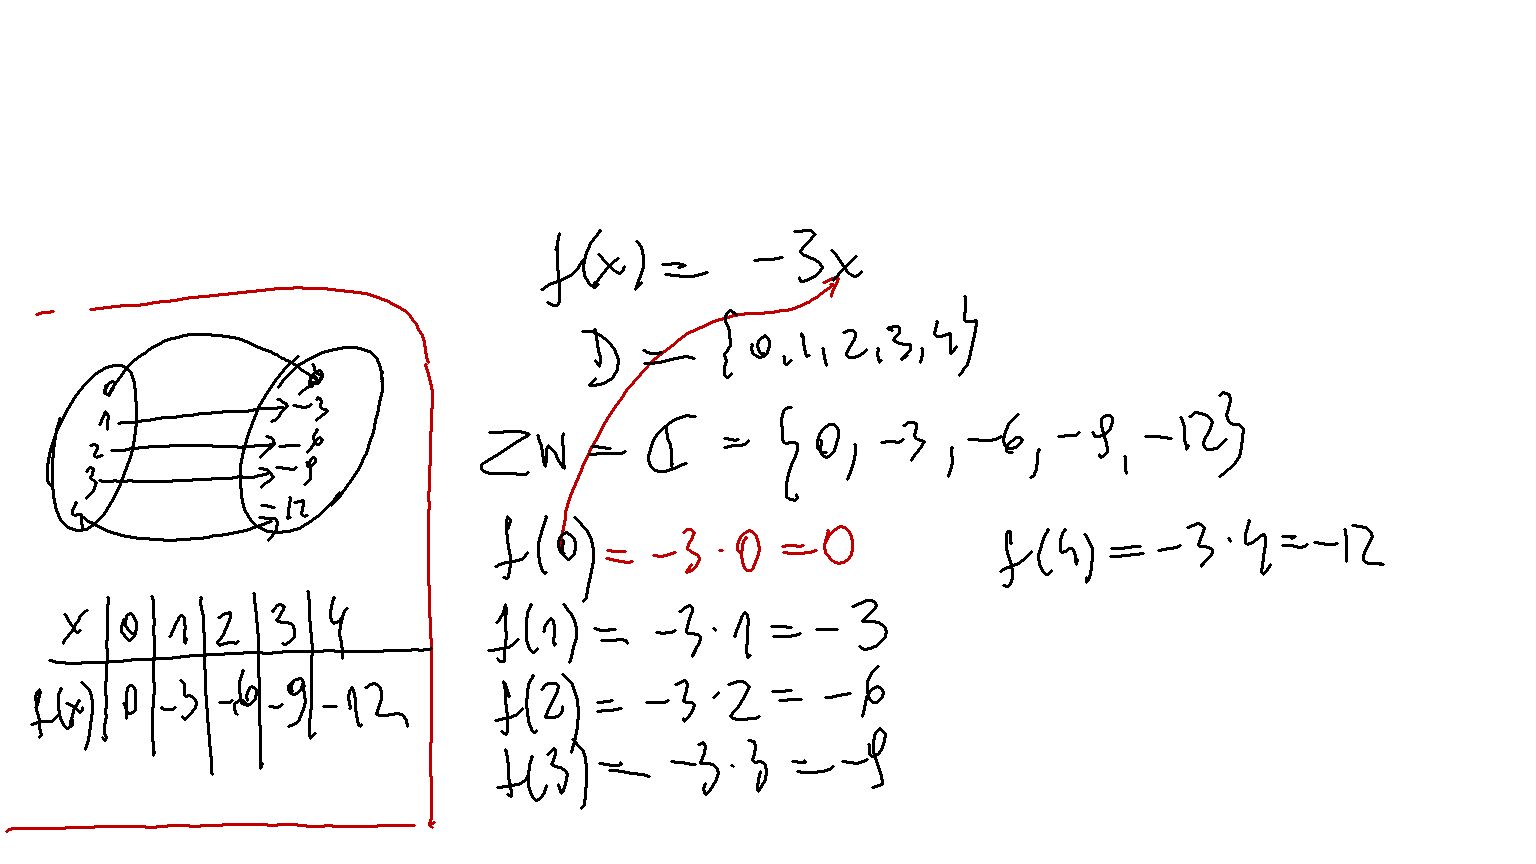 f(x) = -3x
D = {0,1,2,3,4}
ZW = = {0, -3, -6, -9, -12}
f(0) = -3·0 = 0
f(4) = -3·4 = -12
f(1) = -3·1 = -3
f(2) = -3·2 = -6
f(3) = -3·3 = -9
0 0
1 -3
2 -6
3 -9
4 -12
x 0 1 2 3 4
f(x) 0 -3 -6 -9 -12